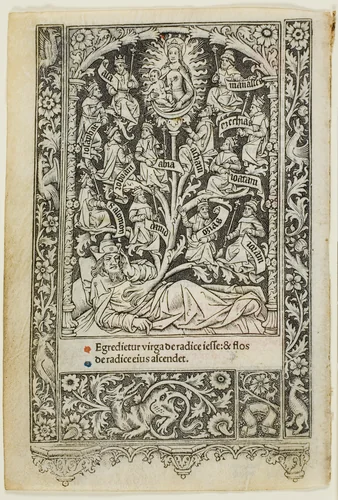 manasse
ezechias
abia
ioatam
salomon
david
ozias
Egredietur virga de radice iesse: & flos
de radice eius ascendet.